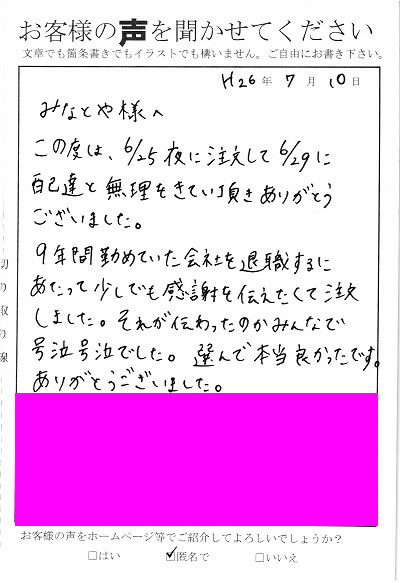 お客様の声を聞かせてください
文章でも箇条書きでもイラストでも構いません。ご自由にお書き下さい。
H26年 7月 10日
みなとや様へ
この度は、6/25夜に注文して6/29に
配達と無理をきいて頂きありがとう
ございました。
9年間勤めていた会社を退職するに
あたって少しでも感謝を伝えたくて注文
しました。それが伝わったのかみんなで
号泣号泣でした。選んで本当良かったです。
ありがとうございました。
切り取り線
お客様の声をホームページ等でご紹介してよろしいでしょうか？
□はい ☑匿名で □いいえ